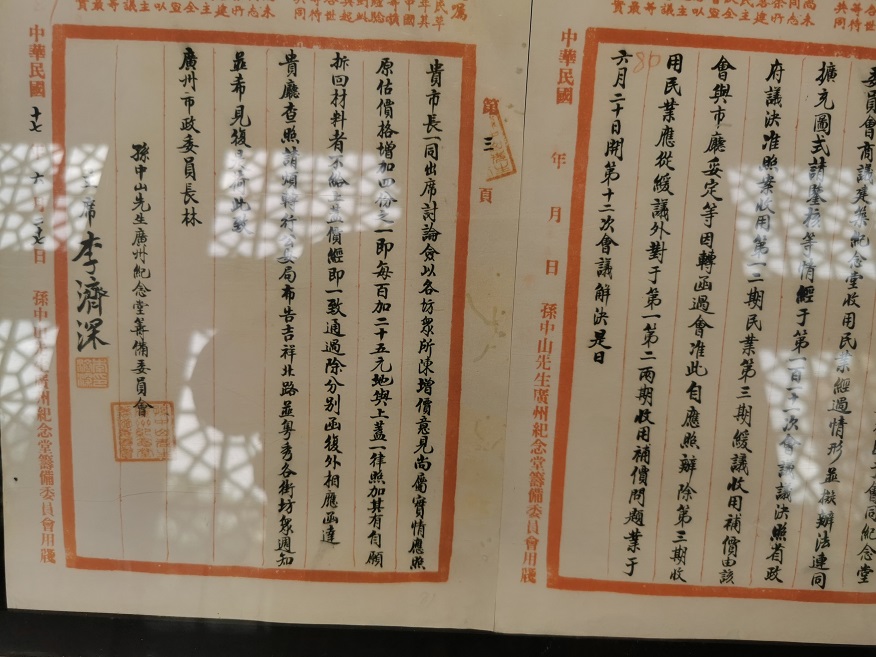 會同紀念堂
委員會商議建築紀念堂收用民業經過情形並擬辦法連同
擴充圖式請鑒核等情經于第一百十一次會議議決照省政
府議決准照案收用第一二期民業第三期緩議收用補價由該
會與市廳妥定等因轉函過會准此自應照辦除第三期收
用民業應從緩議外對于第一第二兩期收用補價問題業于
六月二十日開第十二次會議解決是日
中華民國 年 月 日 孫中山先生廣州紀念堂籌備委員會用牋
第三頁
貴市長一同出席討論僉以各坊衆所陳增價意見尚屬實情應照
原估價格增加四份之一即每百加二十五元地與上蓋一律照加其有自願
拆回材料者不給上蓋價經即一致通過除分別函復外相應函達
貴廳查照請煩轉行公安局布告吉祥北路並粤秀各街坊衆週知
並希見復爲荷此致
廣州市政委員長林
孫中山先生廣州紀念堂籌備委員會
主席 李濟深
中華民國十七年六月二十七日 孫中山先生廣州紀念堂籌備委員會用牋